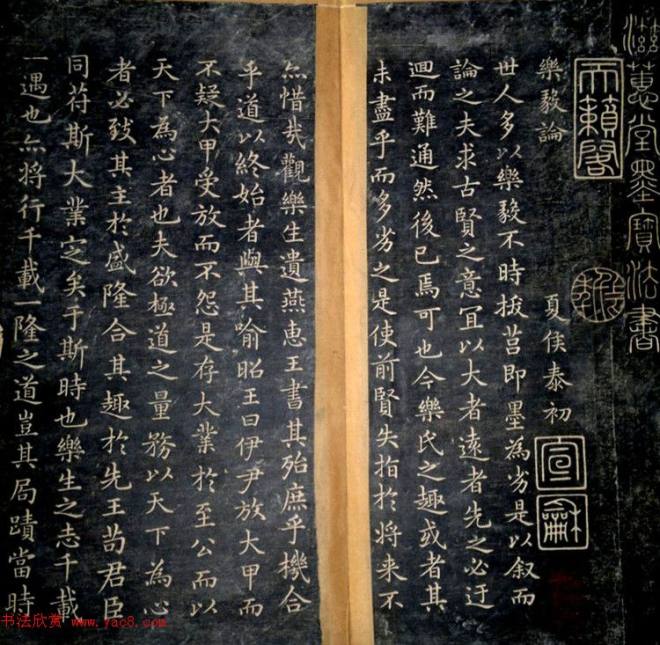 滋蕙堂墨寶法書
天籟閣
樂毅論 夏侯泰初
宣龢
世人多以樂毅不時拔莒即墨為劣是以叙而
論之夫求古賢之意宜以大者遠者先之必迂
迴而難通然後已焉可也今樂氏之趣或者其
未盡乎而多劣之是使前賢失指於将来不
亦惜哉觀樂生遺燕惠王書其殆庶乎機合
乎道以終始者與其喻昭王曰伊尹放大甲而
不疑大甲受放而不怨是存大業於至公而以
天下為心者也夫欲極道之量務以天下為心
者必致其主於盛隆合其趣於先王苟君臣
同苻斯大業定矣于斯時也樂生之志千載
一遇也亦将行千載一隆之道豈其局蹟當時
书法欣赏 www.yac8.com